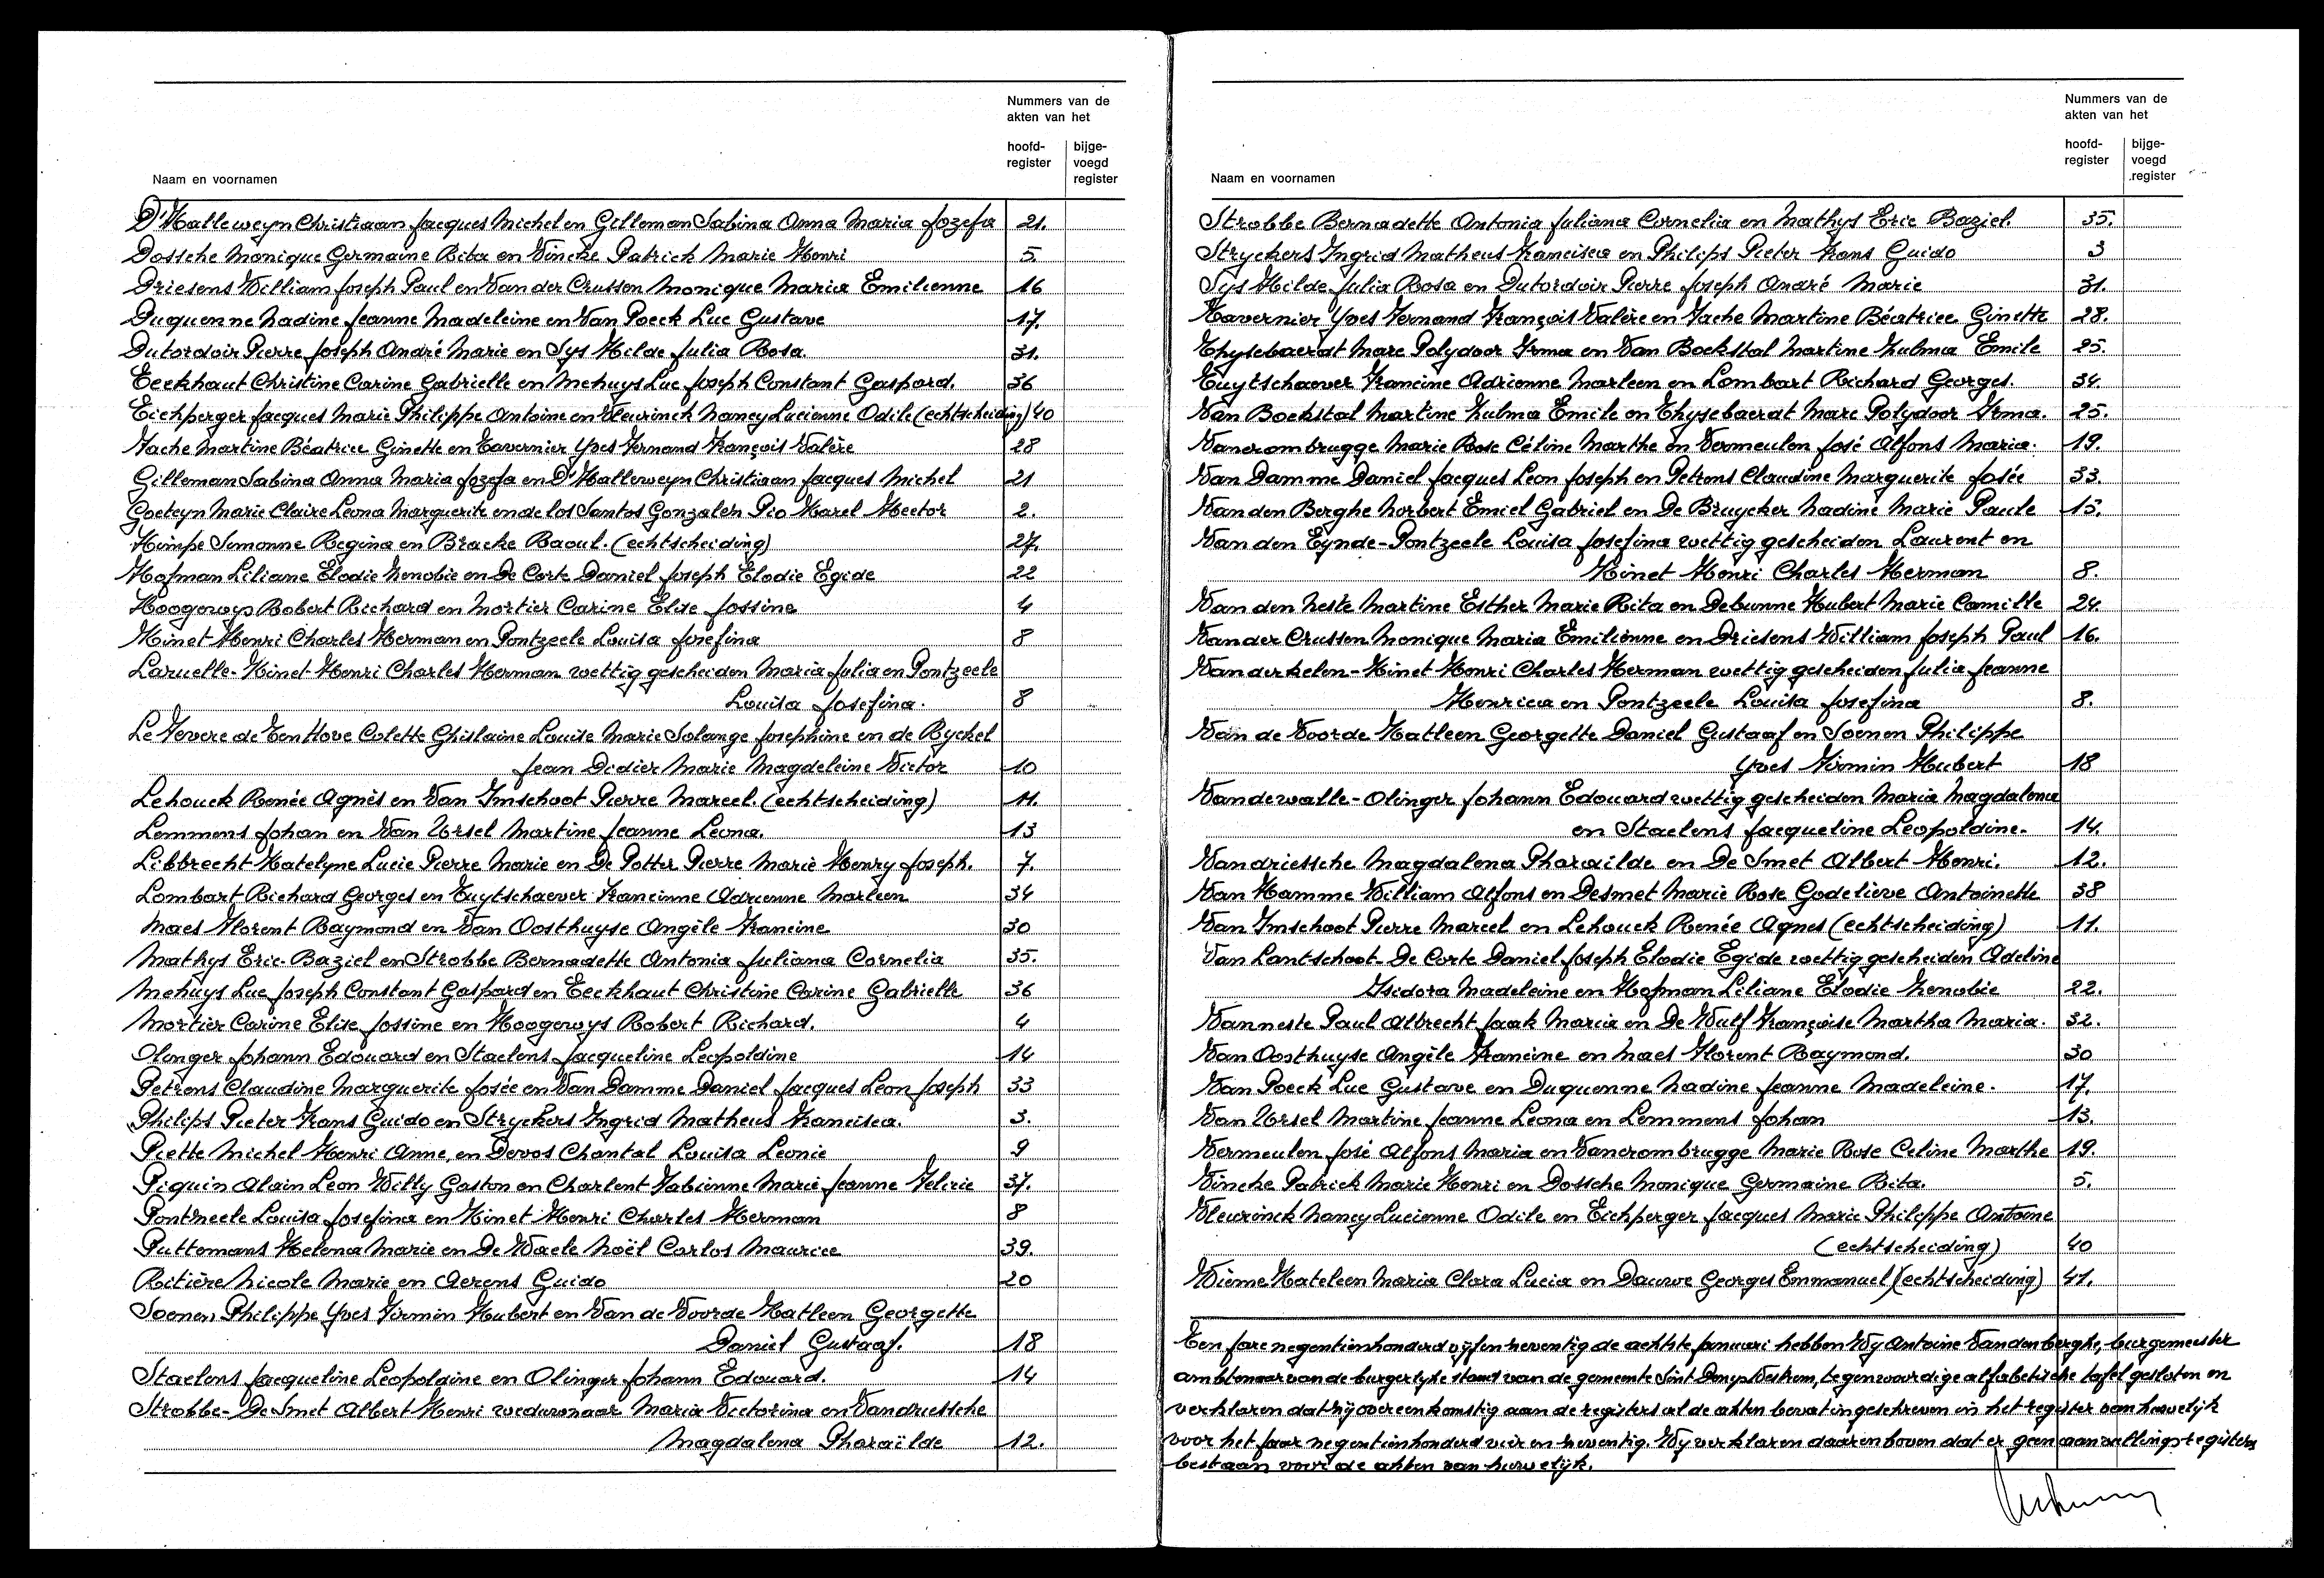 Nummers van de
akten van het
hoofd-
register
bijge-
voegd
register
Naam en voornamen
D'Halleweyn Christiaan Jacques Michel en Gilleman Sabina Anna Maria Jozefa 21.
Dossche Monique Germaine Rita en Vincke Patrick Marie Henri 5.
Driesens William Joseph Paul en Van der Crussen Monique Maria Emilienne 16
Duquenne Nadine Jeanne Madeleine en Van Poeck Luc Gustave 17.
Dutordoir Pierre Joseph André Marie en Sys Hilde Julia Rosa. 31.
Eeckhaut Christine Carine Gabrielle en Mehuys Luc Joseph Constant Gaspard. 36
Eichperger Jacques Marie Philippe Antoine en Vleurinck Nancy Lucienne Odile (echtscheiding) 40
Fache Martine Béatrice Ginette en Tavernier Yves Fernand François Valère 28
Gilleman Sabina Anna Maria Jozefa en D'Halleweyn Christiaan Jacques Michel 21
Goeteyn Marie Claire Leona Marguerite en de los Santos Gonzalez Pio Karel Hector 2.
Himpe Simonne Regina en Bracke Raoul. (echtscheiding) 27.
Hofman Liliane Elodie Zenobie en De Corte Daniel Joseph Elodie Egide 22
Hoogewys Robert Richard en Mortier Carine Elise Jossine 4
Kinet Henri Charles Herman en Pontzeele Louisa Josefina 8
Laruelle-Kinet Henri Charles Herman wettig gescheiden Maria Julia en Pontzeele
Louisa Josefina. 8
Le Fevere de Ten Hove Colette Ghislaine Louise Marie Solange Josephine en de Ryckel
Jean Didier Marie Magdeleine Victor 10
Lehouck Renée Agnès en Van Imschoot Pierre Marcel. (echtscheiding) 11.
Lemmens Johan en Van Ursel Martine Jeanne Leona. 13
Libbrecht Katelyne Lucie Pierre Marie en De Potter Pierre Marie Henry Joseph. 7.
Lombart Richard Georges en Tuytschaever Francinne Adrienne Marleen 34
Maes Florent Raymond en Van Oosthuyse Angèle Francine 30
Mathys Eric Baziel en Strobbe Bernadette Antonia Juliana Cornelia 35.
Mehuys Luc Joseph Constant Gaspard en Eeckhaut Christine Carine Gabrielle 36
Mortier Carine Elise Jossine en Hoogewys Robert Richard. 4
Olinger Johann Edouard en Staelens Jacqueline Leopoldine 14
Petrens Claudine Marguerite Josée en Van Damme Daniel Jacques Leon Joseph 33
Philips Pieter Frans Guido en Stryckers Ingrid Matheus Francisca. 3.
Piette Michel Henri Anne, en Devos Chantal Louisa Leonie 9
Piquin Alain Leon Willy Gaston en Charlent Fabienne Marie Jeanne Felicie 37.
Pontzeele Louisa Josefina en Kinet Henri Charles Herman 8
Puttemans Helena Marie en De Waele Noël Carlos Maurice 39.
Ritière Nicole Marie en Aerens Guido 20
Soenen Philippe Yves Firmin Hubert en Van de Voorde Katleen Georgette
Daniel Gustaaf. 18
Staelens Jacqueline Leopoldine en Olinger Johann Edouard. 14
Strobbe-De Smet Albert Henri weduwnaar Maria Victorina en Vandriessche
Magdalena Pharaïlde 12.
Nummers van de
akten van het
hoofd-
register
bijge-
voegd
register
Naam en voornamen
Strobbe Bernadette Antonia Juliana Cornelia en Mathys Eric Baziel. 35.
Stryckers Ingrid Matheus Francisca en Philips Pieter Frans Guido 3
Sys Hilde Julia Rosa en Dutordoir Pierre Joseph André Marie 31.
Tavernier Yves Fernand François Valère en Fache Martine Béatrice Ginette 28.
Thysebaerdt Marc Polydoor Irma en Van Bockstal Martine Zulma Emile 25.
Tuytschaever Francine Adrienne Marleen en Lombart Richard Georges. 34.
Van Bockstal Martine Zulma Emile en Thysebaerdt Marc Polydoor Irma. 25.
Vancrombrugge Marie Rose Céline Marthe en Vermeulen José Alfons Maria. 19.
Van Damme Daniel Jacques Leon Joseph en Petrens Claudine Marguerite Josée 33.
Van den Berghe Norbert Emiel Gabriel en De Bruycker Nadine Marie Paule 15.
Van den Eynde-Pontzeele Louisa Josefina wettig gescheiden Laurent en
Kinet Henri Charles Herman 8.
Van den Neste Martine Esther Marie Rita en Debunne Hubert Marie Camille 24.
Van der Crussen Monique Maria Emilienne en Driesens William Joseph Paul 16.
Vanderkelen-Kinet Henri Charles Herman wettig gescheiden Julia Jeanne
Henrica en Pontzeele Louisa Josefina 8.
Van de Voorde Katleen Georgette Daniel Gustaaf en Soenen Philippe
Yves Firmin Hubert 18
Vandewalle-Olinger Johann Edouard wettig gescheiden Maria Magdalena
en Staelens Jacqueline Leopoldine. 14.
Vandriessche Magdalena Pharaïlde en De Smet Albert Henri. 12.
Van Hamme William Alfons en Desmet Marie Rose Godelieve Antoinette 38
Van Imschoot Pierre Marcel en Lehouck Renée Agnes (echtscheiding) 11.
Van Lantschoot-De Corte Daniel Joseph Elodie Egide wettig gescheiden Adeline
Isidora Madeleine en Hofman Liliane Elodie Zenobie 22.
Vanneste Paul Albrecht Jaak Maria en De Wulf Françoise Martha Maria. 32.
Van Oosthuyse Angèle Francine en Maes Florent Raymond. 30
Van Poeck Luc Gustave en Duquenne Nadine Jeanne Madeleine. 17.
Van Ursel Martine Jeanne Leona en Lemmens Johan 13.
Vermeulen José Alfons Maria en Vancrombrugge Marie Rose Celine Marthe 19.
Vincke Patrick Marie Henri en Dossche Monique Germaine Rita. 5.
Vleurinck Nancy Lucienne Odile en Eichperger Jacques Marie Philippe Antoine
(echtscheiding) 40
Wième Kateleen Maria Clara Lucia en Dauwe Georges Emmanuel (echtscheiding) 41.
Een jare negentienhonderd vijfenzeventig de achtste januari hebben Wij Antoine Vandenberghe, burgemeester
ambtenaar van de burgerlyke stand van de gemeente Sint Denys Westrem, tegenwoordige alfabetische tafel gesloten en
verklaren dat zij overeenkomstig aan de registers al de akten bevat ingeschreven in het register van huwelijk
voor het jaar negentienhonderd vier en zeventig. Wij verklaren daarenboven dat er geen aanvullingsregisters
bestaan voor de akten van huwelijk.